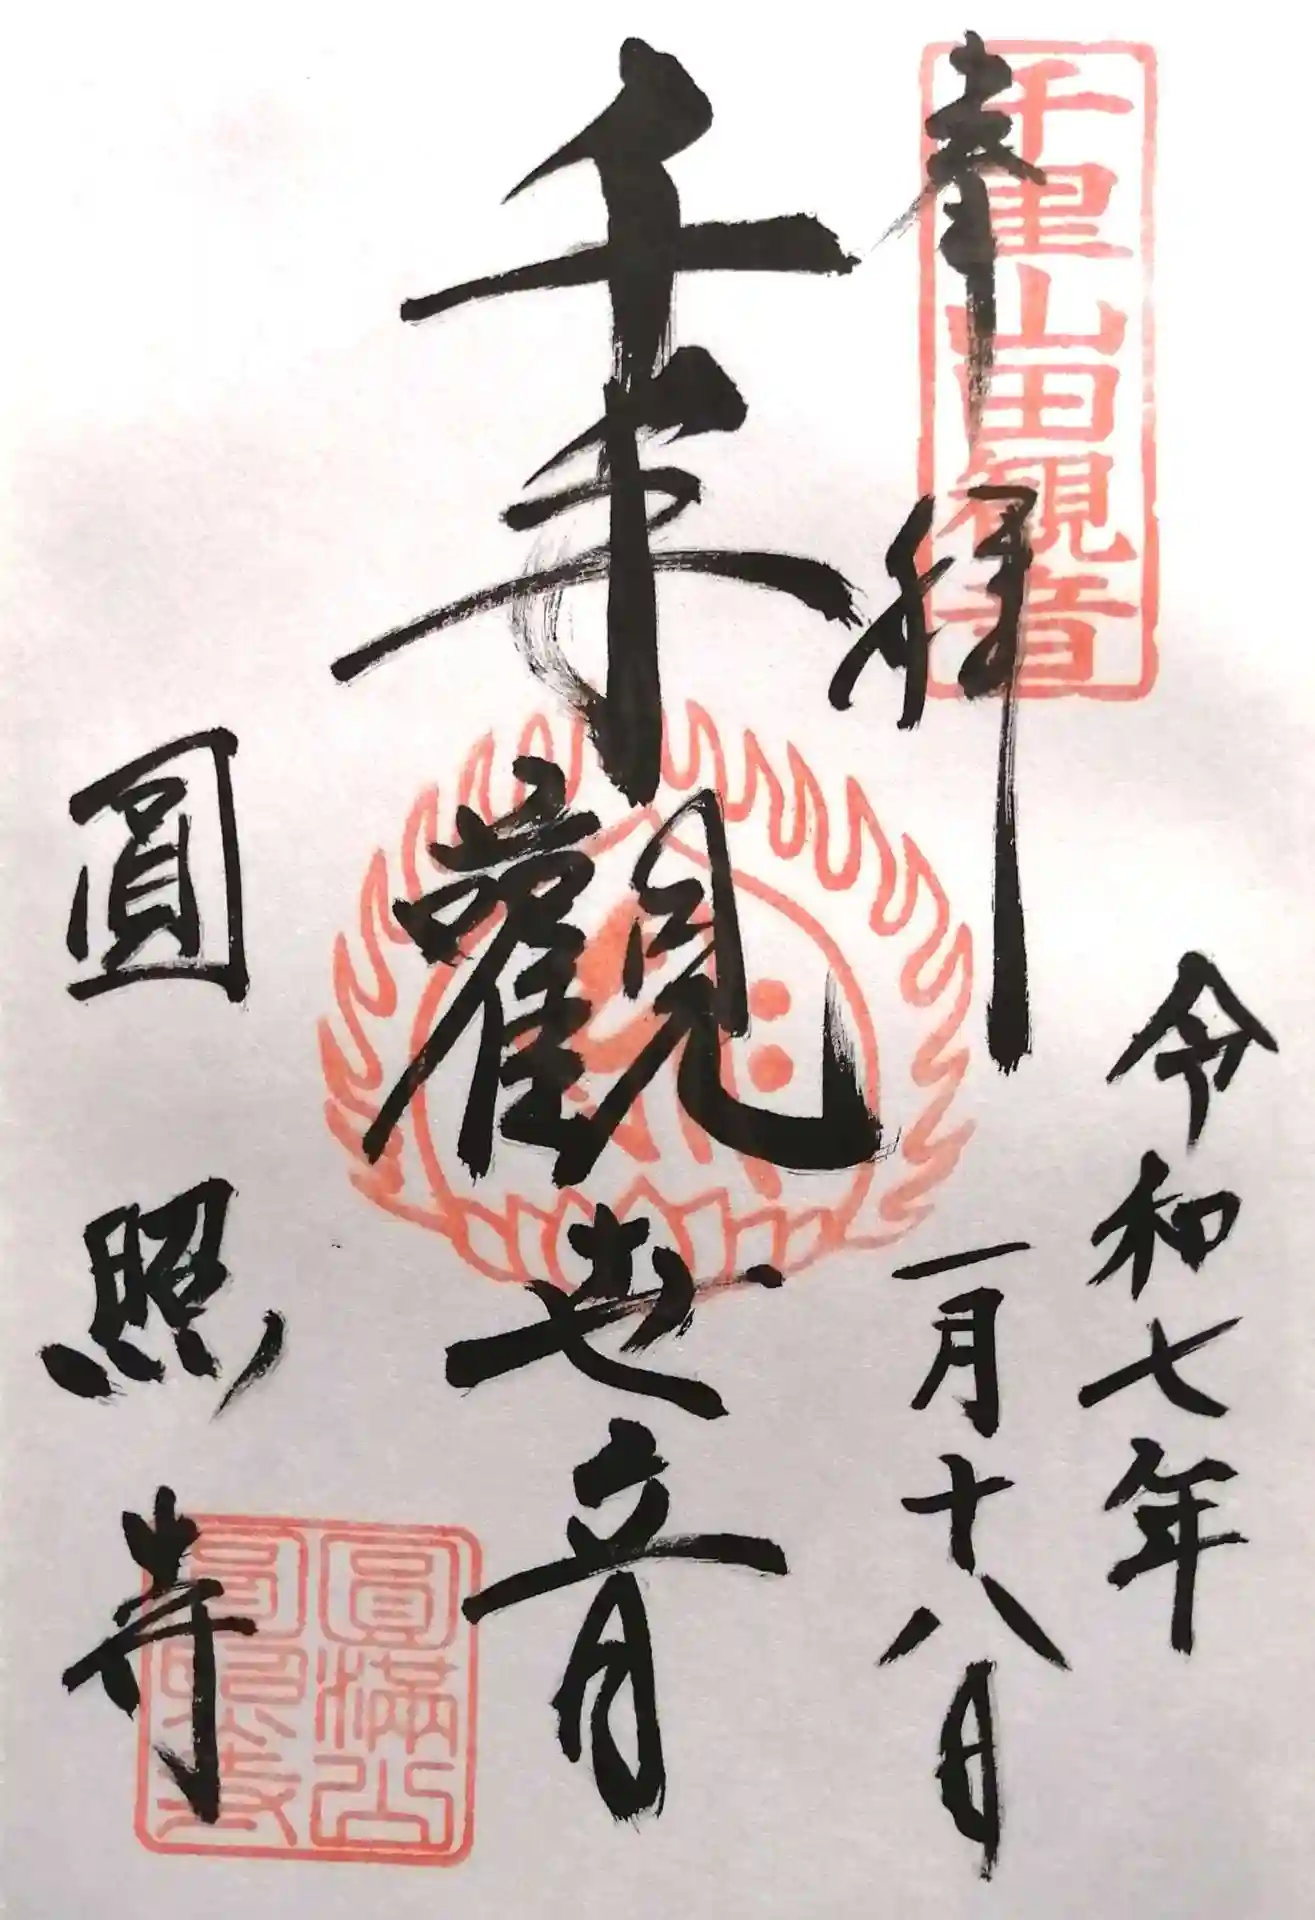 千里山田観音
奉拝
令和七年
一月十八日
千手觀世音
圓照寺
圓満山
圓照寺